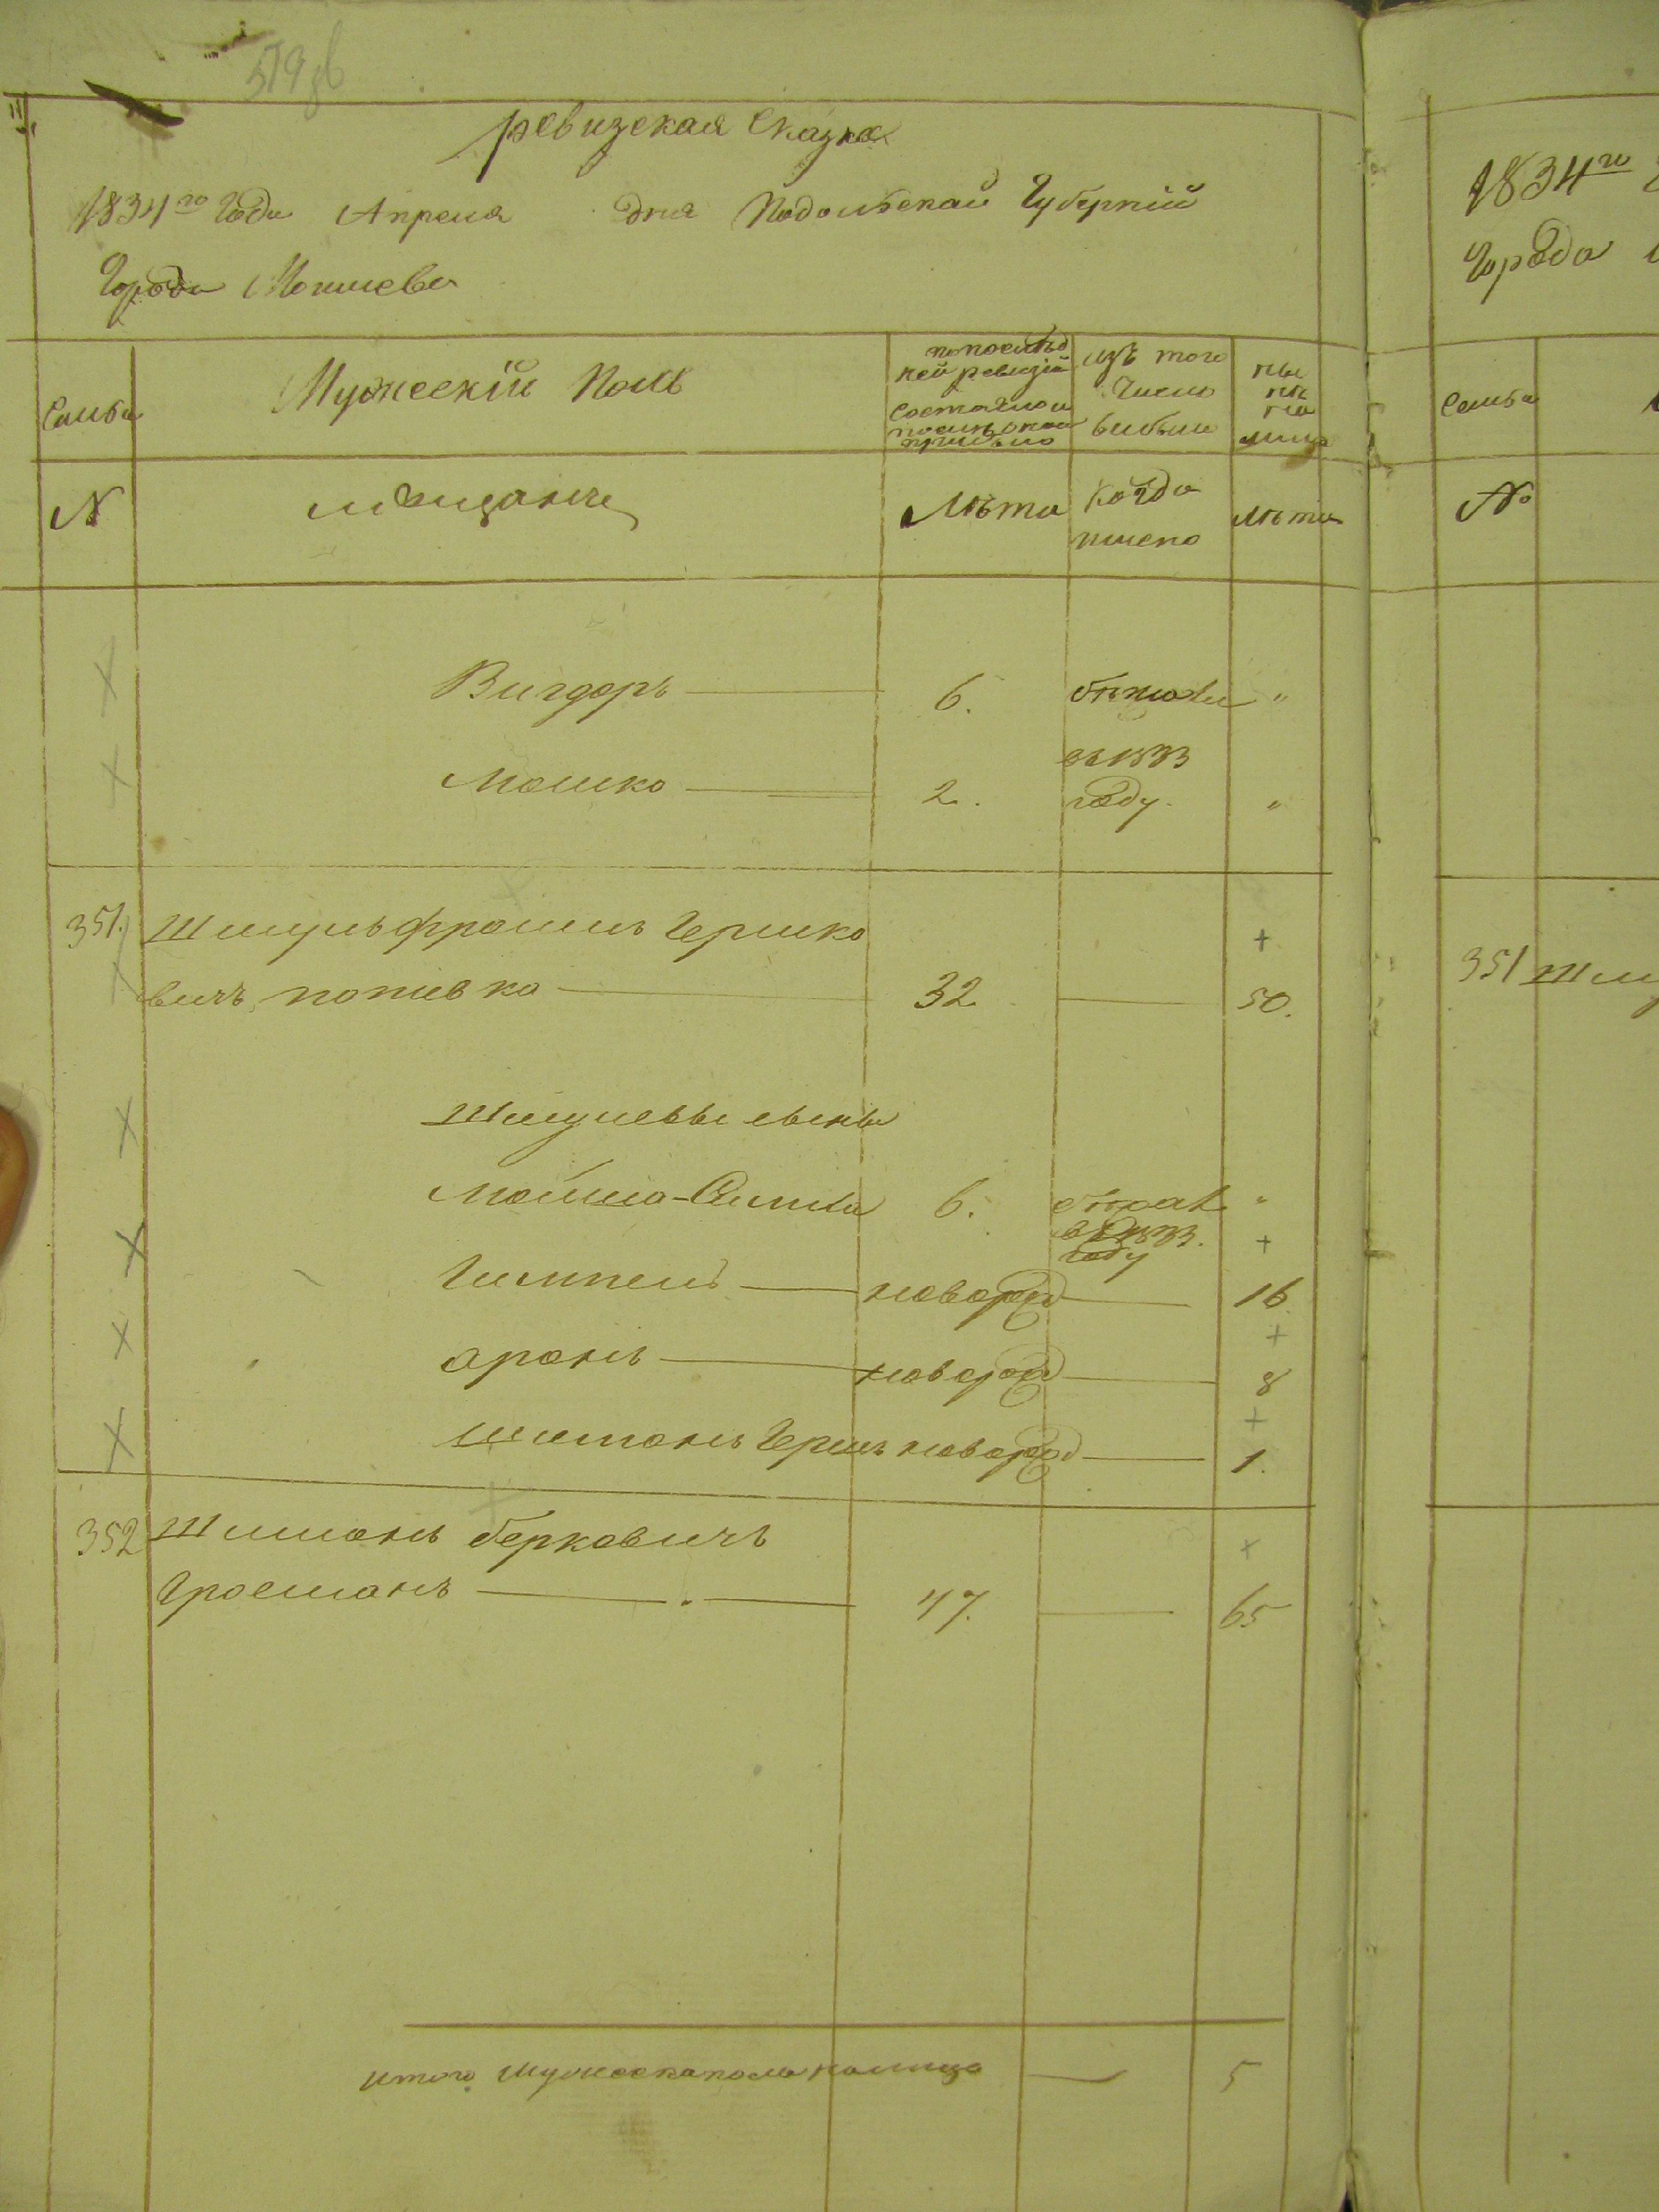 579 об
ревизская Сказка
1834го Года Апреля дня Подольской Губерніи
Города Могилева
Семьи
Мужескій Полъ
по послед
ней ревизіи
состояло и
после оной
прибыло
изъ того
числа
выбыли
ны
не
на
лицо
N
мещанъ
Лѣта
Когда
именно
Лѣта
Вигдоръ 6. бежали "
въ 1833
Мошко 2. году. "
351. Шмуль Фроимъ Гершко +
вичъ 32 50.
Шмулевы сыны
6. "
в 1833. +
году
Гимпель новород 16.
+
аронъ новород 8
+
Гершъ новород 1.
352 Шимонъ берковичъ +
Гросманъ 47. 65
итого мужеска пола налицо 5
1834го
Города
Семьи
No
351 Шму